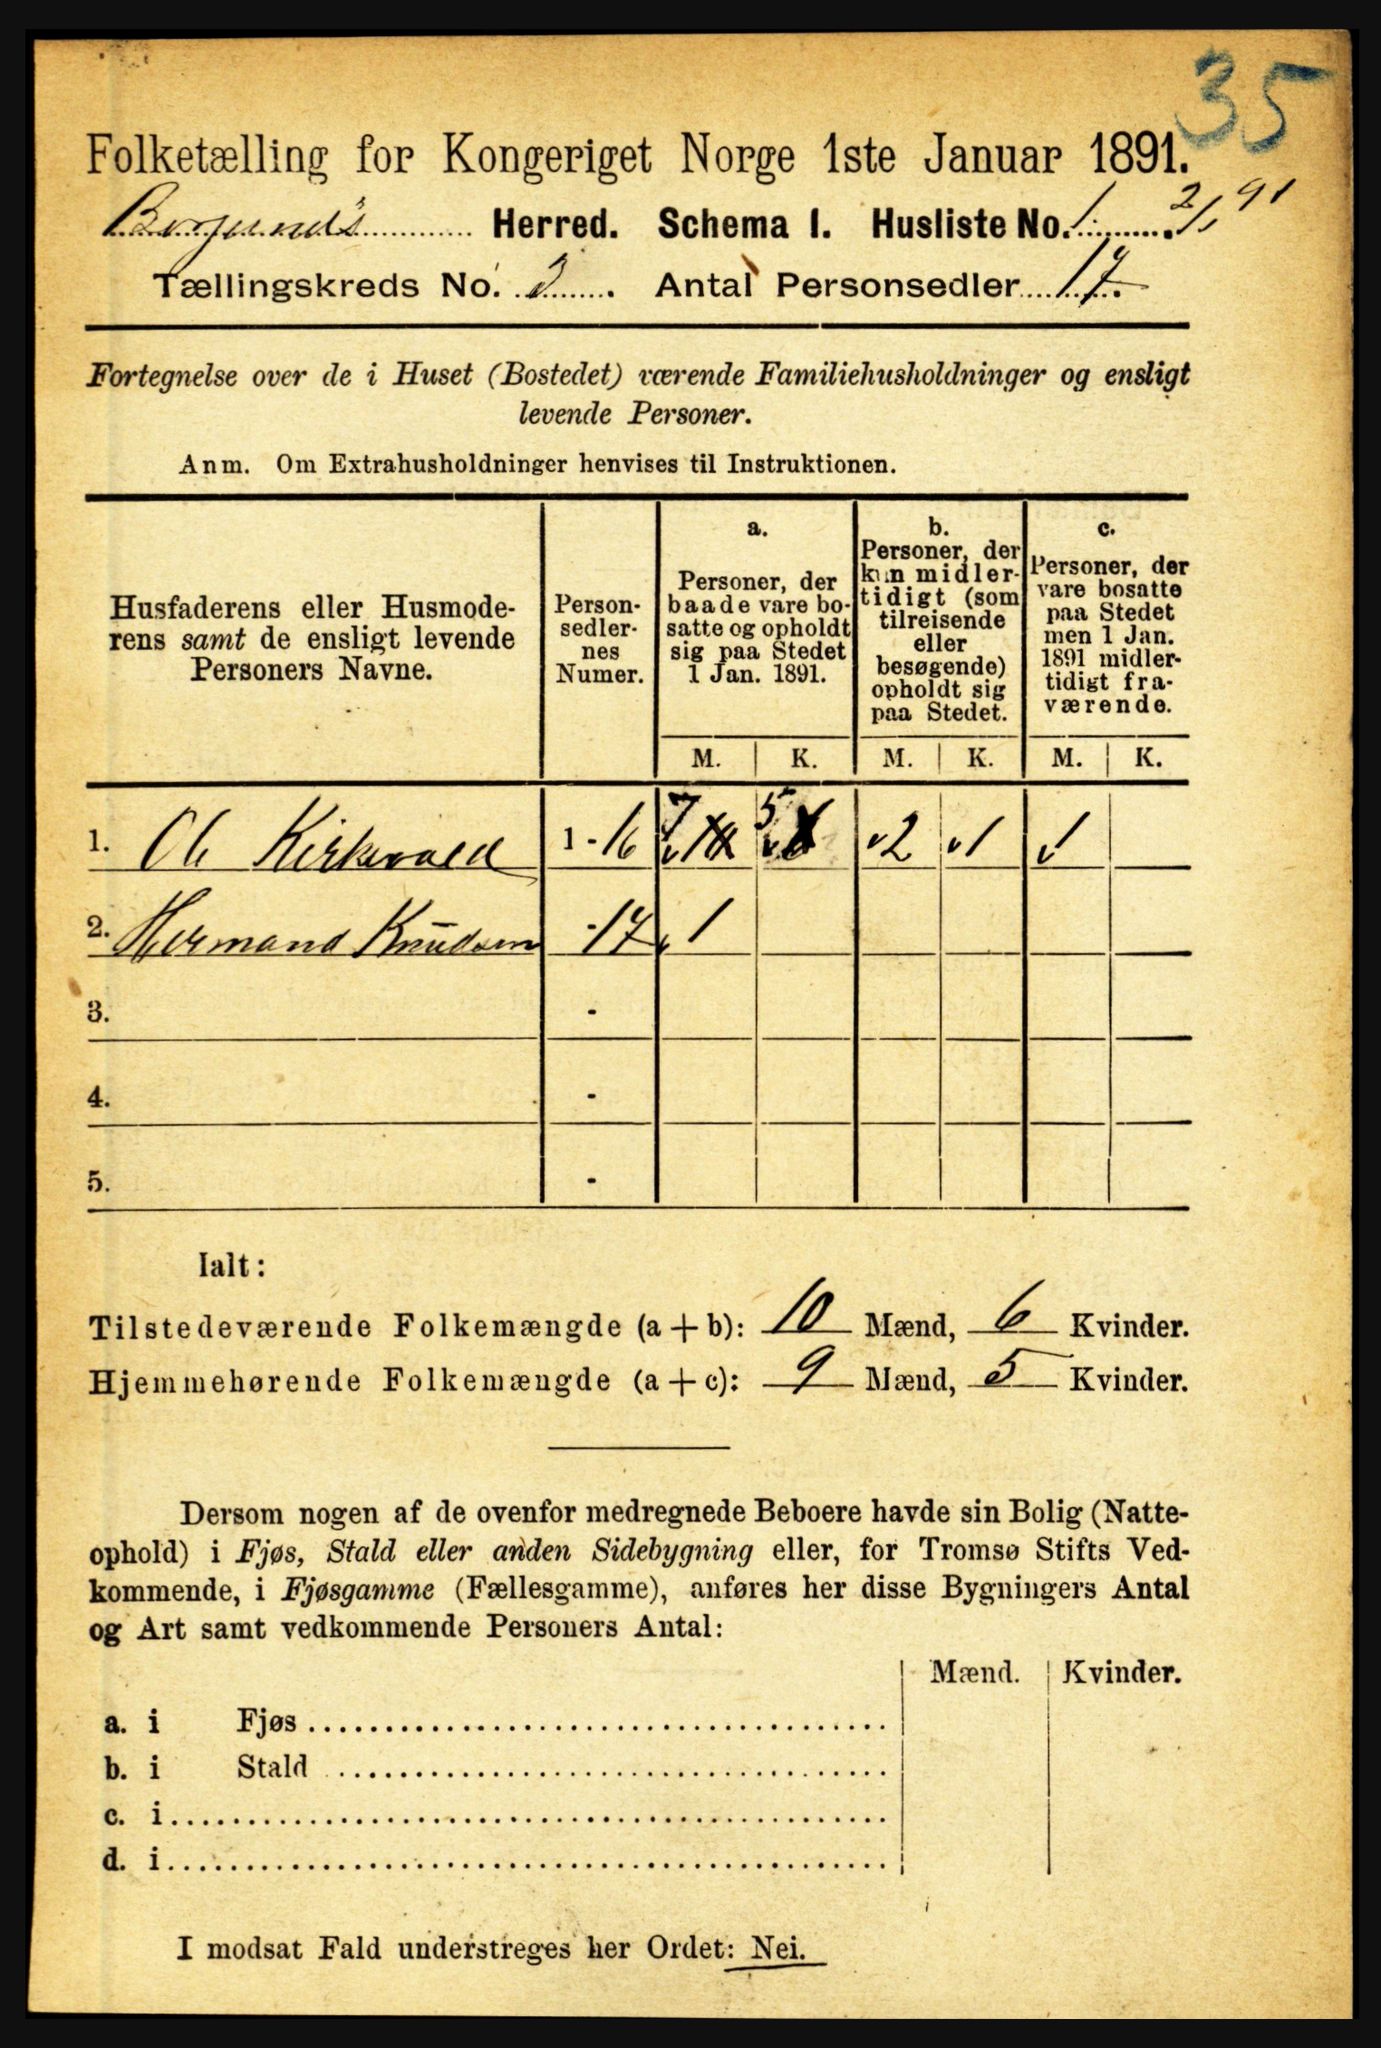 35
Folketælling for Kongeriget Norge 1ste Januar 1891.
Borgunds Herred. Schema I. Husliste No. 1. 2/1 91
Tællingskreds No. 3. Antal Personsedler 17.
Fortegnelse over de i Huset (Bostedet) værende Familiehusholdninger og ensligt
levende Personer.
Anm. Om Extrahusholdninger henvises til Instruktionen.
Husfaderens eller Husmode-
rens samt de ensligt levende
Personers Navne.
Person-
sedler-
nes
Numer.
a.
Personer, der
baade vare bo-
satte og opholdt
sig paa Stedet
1 Jan. 1891.
b.
Personer, der
kun midler-
tidigt (som
tilreisende
eller
besøgende)
opholdt sig
paa Stedet.
c.
Personer, der
vare bosatte
paa Stedet
men 1 Jan.
1891 midler-
tidigt fra-
værende.
M. K. M. K. M. K.
1. Ole Kirkevold 1 - 16 7 5 2 1 1
2. Hermand Knudsen - 17 1
3. -
4. -
5. -
Ialt:
Tilstedeværende Folkemængde (a + b): 10 Mænd, 6 Kvinder.
Hjemmehørende Folkemængde (a + c): 9 Mænd, 5 Kvinder.
Dersom nogen af de ovenfor medregnede Beboere havde sin Bolig (Natte-
ophold) i Fjøs, Stald eller anden Sidebygning eller, for Tromsø Stifts Ved-
kommende, i Fjøsgamme (Fællesgamme), anføres her disse Bygningers Antal
og Art samt vedkommende Personers Antal:
Mænd. Kvinder.
a. i Fjøs
b. i Stald
c. i
d. i
I modsat Fald understreges her Ordet: Nei.